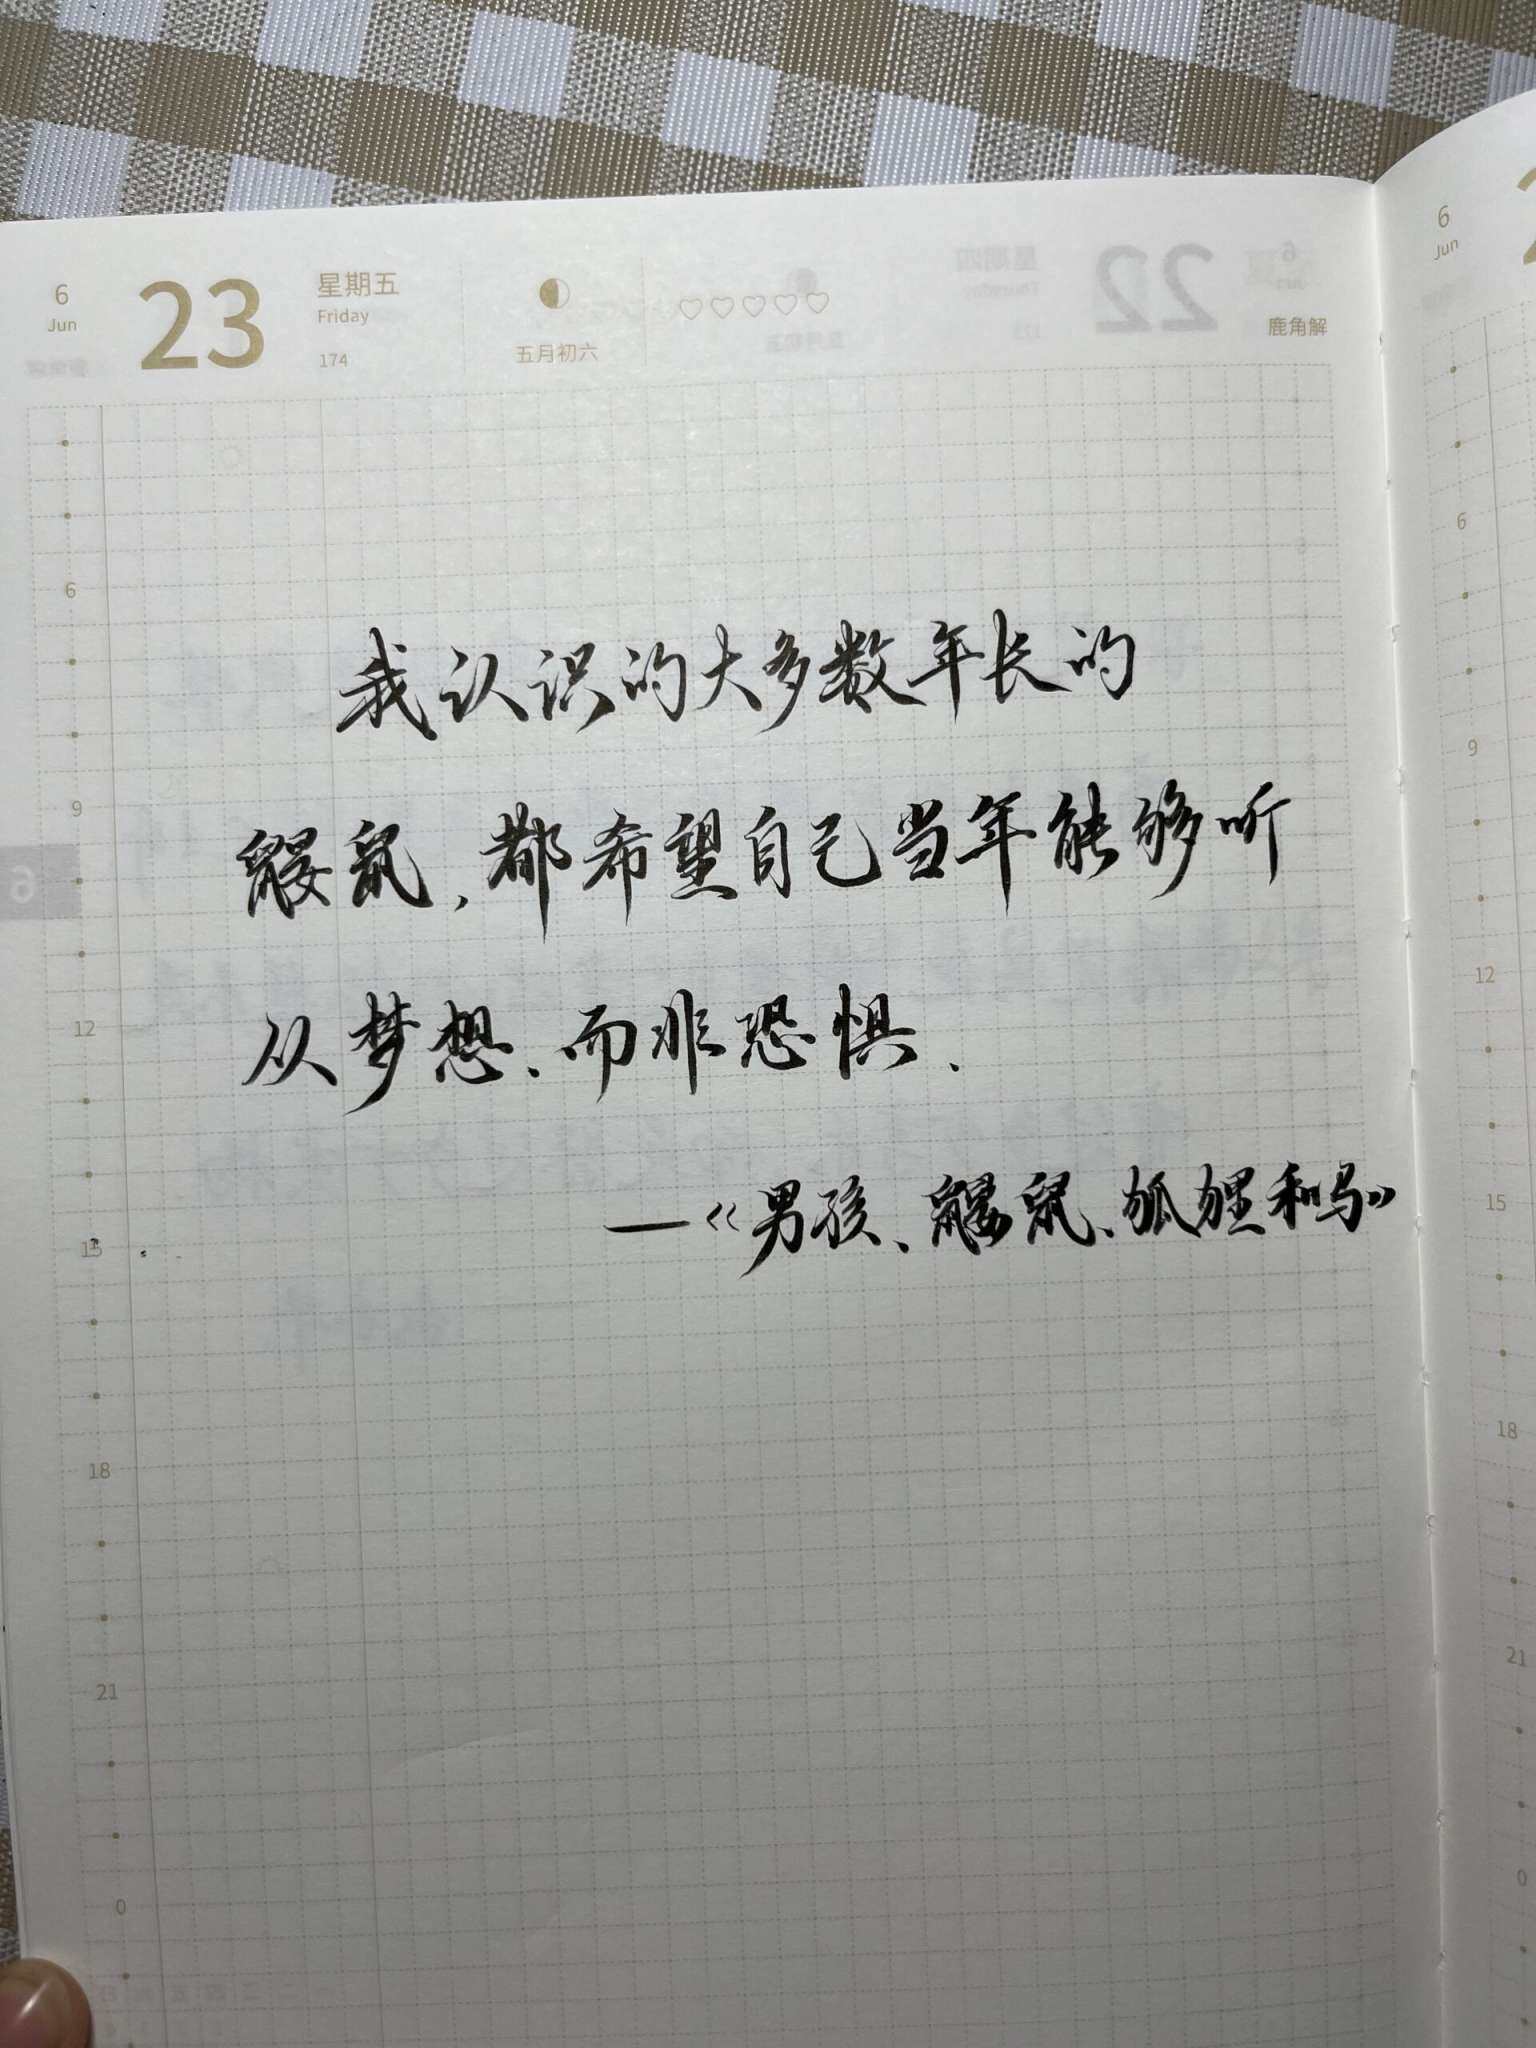 6
Jun
23
星期五
Friday
174
五月初六
鹿角解
6
Jun
22
星期四
Thursday
我认识的大多数年长的
鼹鼠,都希望自己当年能够听
从梦想、而非恐惧、
—《男孩、鼹鼠、狐狸和马》
6
9
12
15
18
21
0
6
6
9
12
15
18
21
0